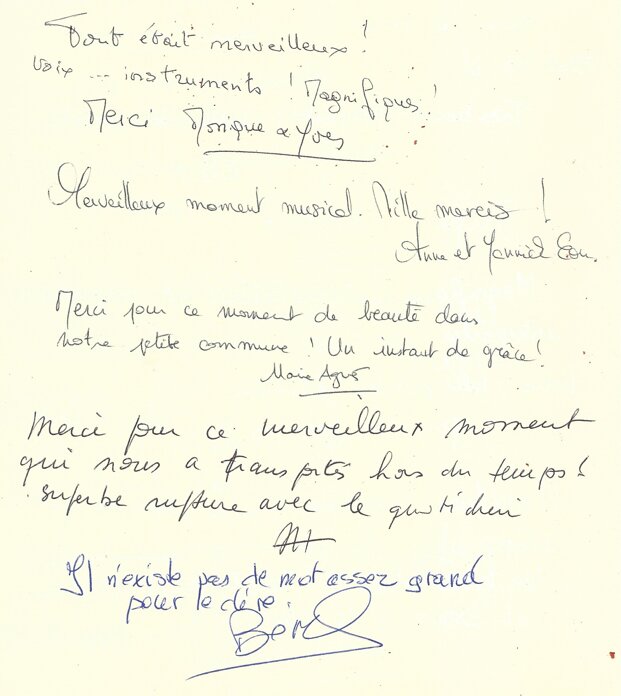 Tout était merveilleux !
Voix ... instruments ! Magnifique !
Merci Monique & Yves
Merveilleux moment musical. Mille mercis !
Anne et Yannick
Merci pour ce moment de beauté dans
notre petite commune ! Un instant de grâce !
Marie Agnès
Merci pour ce merveilleux moment
qui nous a transportés hors du temps !
superbe rupture avec le quotidien
Il n'existe pas de mot assez grand
pour le dire.